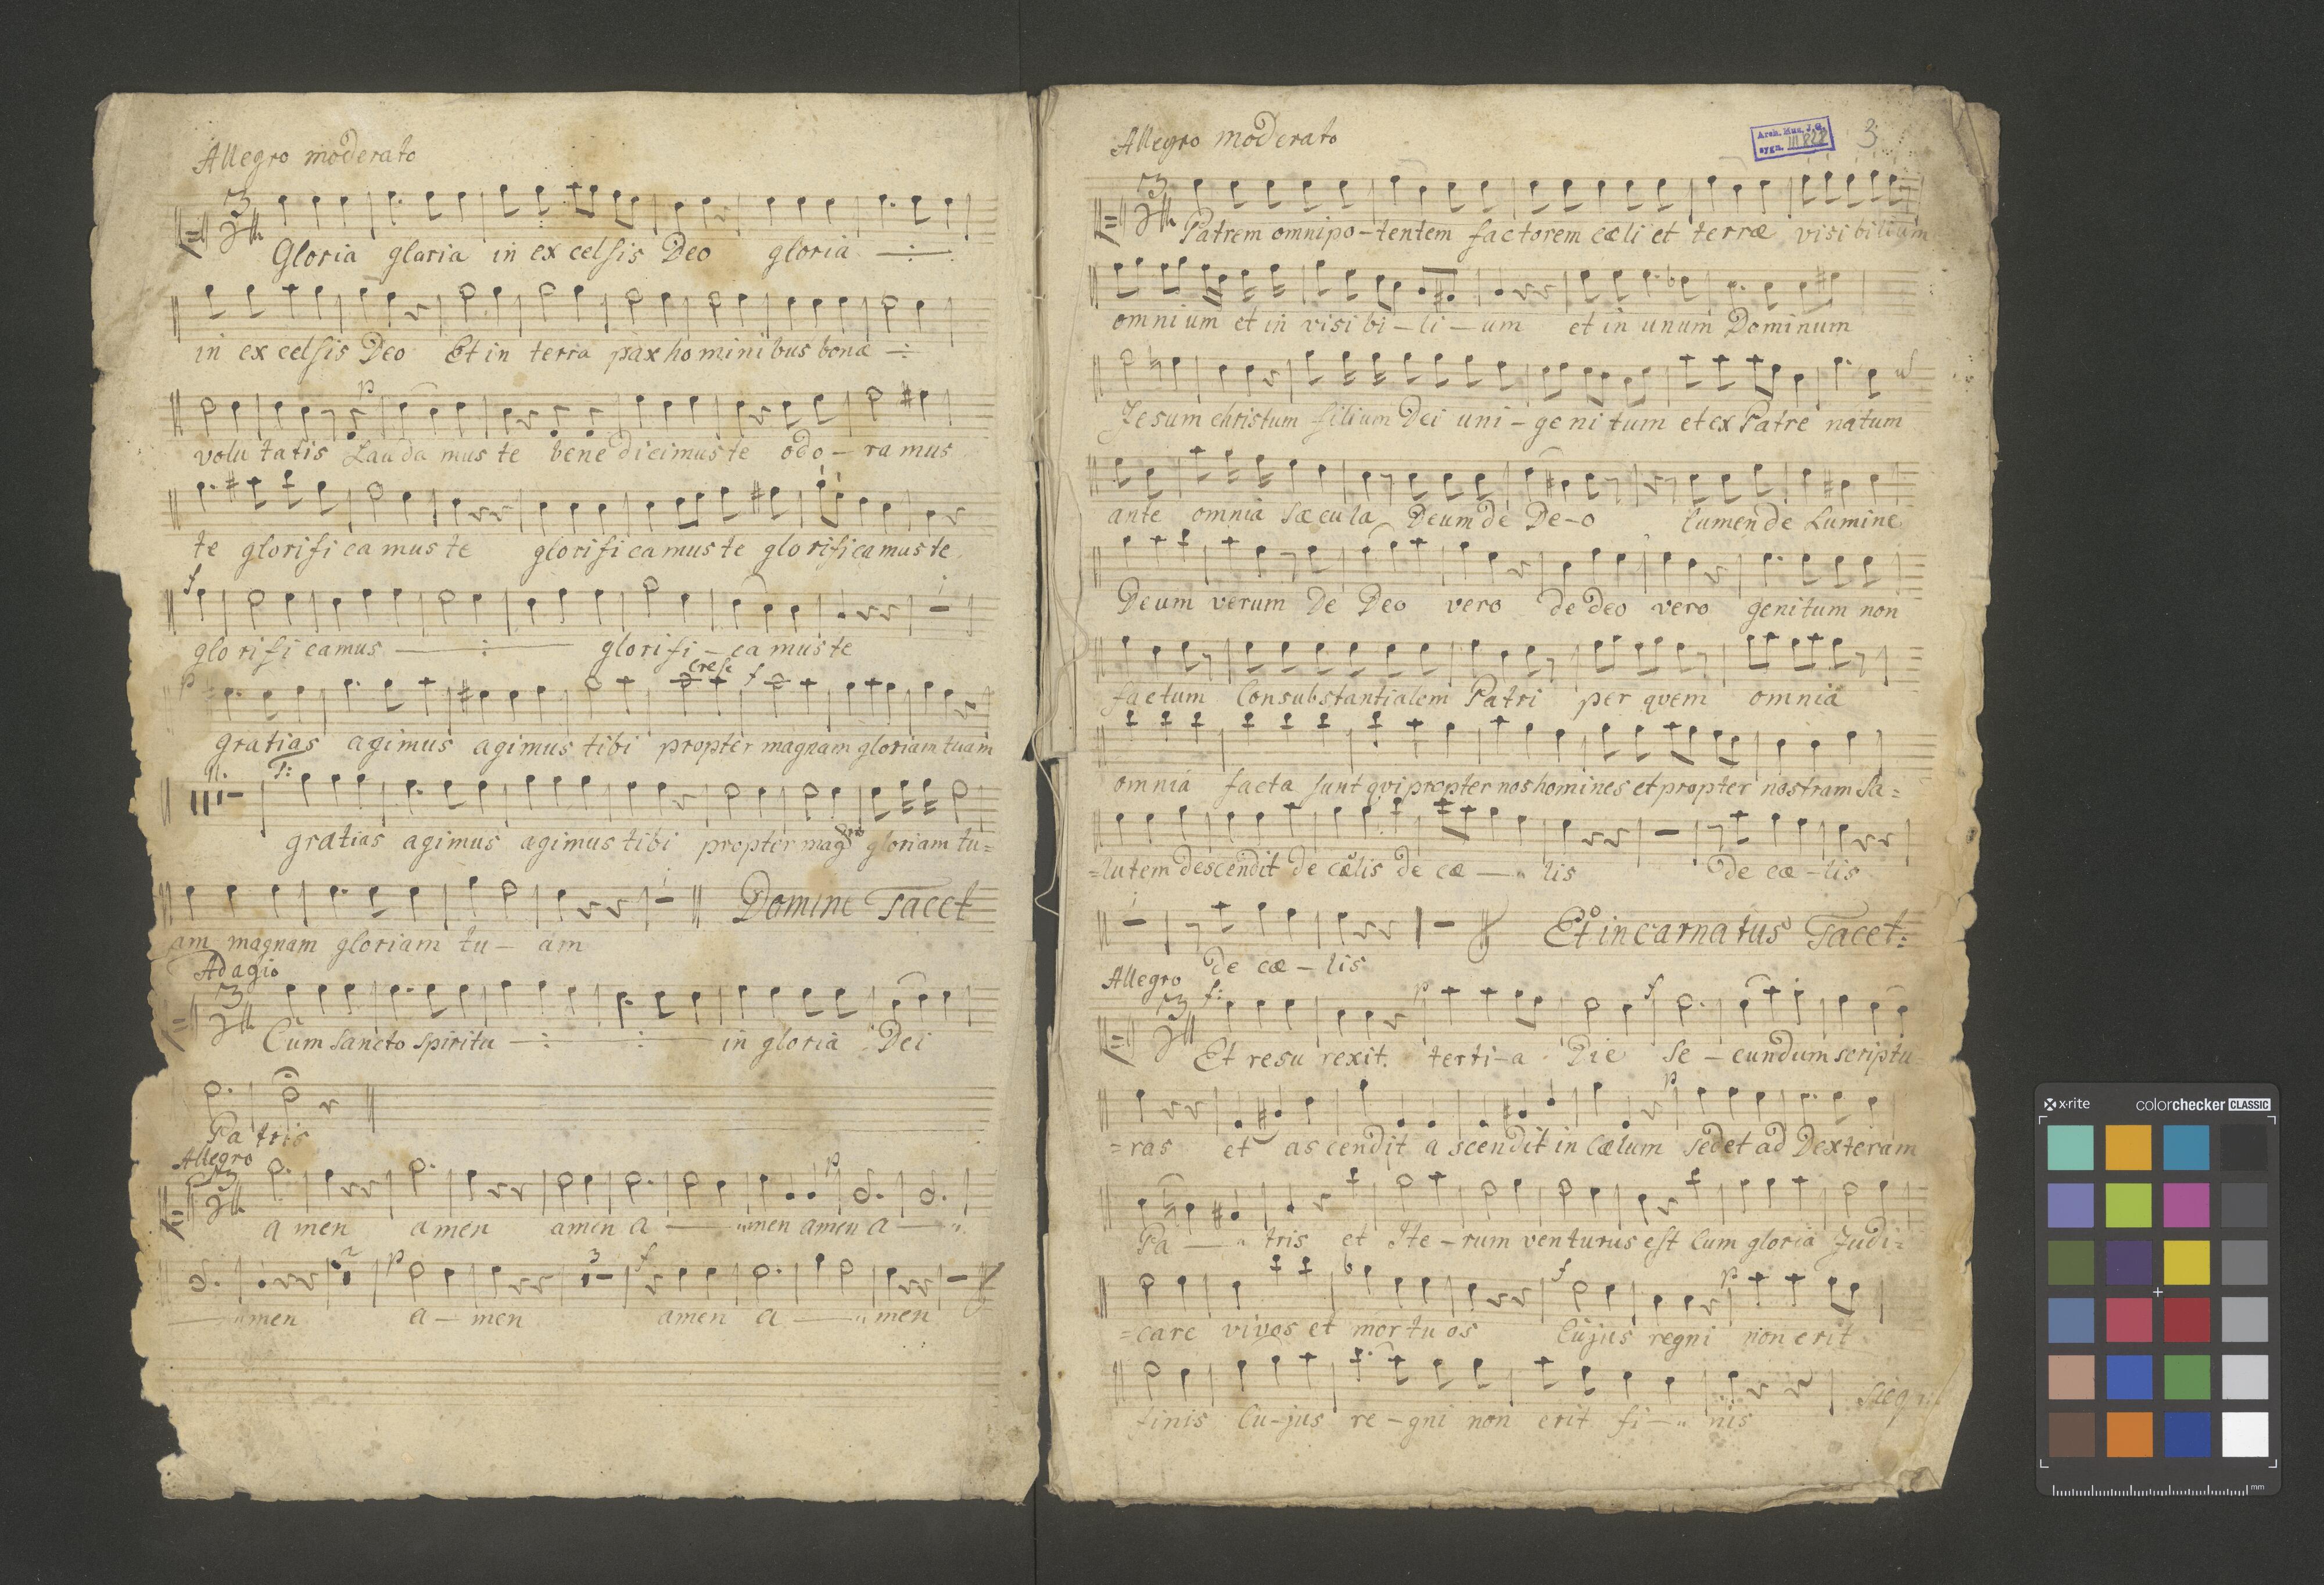 Allegro moderato
Gloria gloria in excelsis Deo gloria
in excelsis Deo Et in terra pax hominibus bonæ
p
volu tatis Lauda mus te bene dicimus te odo - ra mus
te glorifi camus te glorificamus te glorificamus te
f
glorifi camus glorifi - camus te
p cresc f
gratias agimus agimus tibi propter magnam gloriam tuam
gratias agimus agimus tibi propter mag gloriam tu=
Domine Tacet
am magnam gloriam tu - am
Adagio
Cum sancto spiritu in gloria Dei
Patris
Allegro
p
amen amen amen a men amen a
p 3 f
men a - men amen a men
Allegro moderato
Arch. Mus. J. G.
sygn. III 822
3
Patrem omnipo - tentem factorem cæli et terræ visibilium
omnium et in visi bi - li - um et in unum Dominum
Jesum christum filium Dei uni - genitum et ex Patre natum
ante omnia sæcula Deum de De - o lumen de Lumine
Deum verum De Deo vero de deo vero genitum non
factum Consubstantialem Patri per qvem omnia
omnia facta sunt qvi propter nos homines et propter nostram Sa=
=lutem descendit de cælis de cæ lis de cæ - lis
Et incarnatus Tacet:
de cæ - lis
Allegro
f: p f
Et resu rexit. terti - a Die Se - cundum scriptu=
p
=ras et ascendit ascendit in Cælum sedet ad Dexteram
Pa tris et Ite - rum venturus est Cum gloria Judi=
f p
=care vivos et mortuos Cujus regni non erit
finis Cu - jus re - gni non erit fi nis
x-rite colorchecker CLASSIC
mm